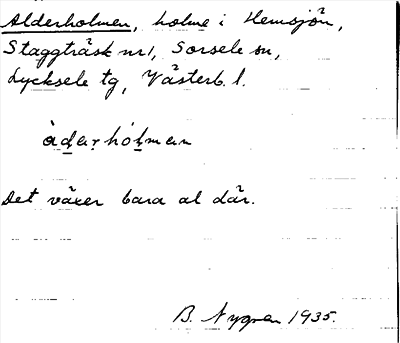 Alderholmen, holme i Hemsjön,
Staggträsk nr1, Sorsele sn,
Lycksele tg, Västerb. l.
àḏaṛhóḻmen
Det växer bara al där.
B. Nygren 1935.